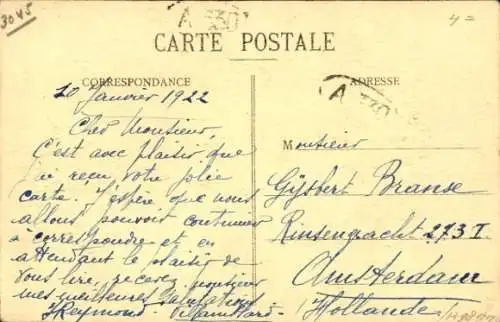 3045
CARTE POSTALE
CORRESPONDANCE
ADRESSE
10 Janvier 1922
Cher Monsieur,
C'est avec plaisir que
j'ai reçu votre jolie
carte. J'espère que nous
allons pouvoir continuer
à correspondre et en
attendant le plaisir de
vous lire, recevez, monsieur
mes meilleures salutations
Monsieur
Gijsbert Branse
Rinsengracht 273 I
Amsterdam
Hollande